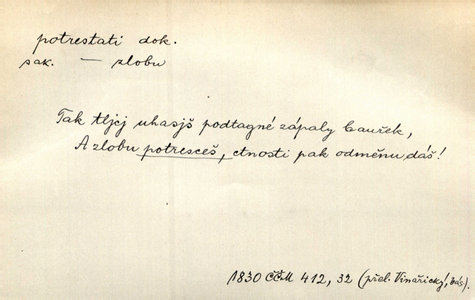 potrestati dok.
sak. — zlobu
Tak tljcj uhasjš podtagné zápaly bauřek,
A zlobu potresceš, ctnosti pak odměnu dáš!
1830 ČČM 412, 32 (přel. Vinařický, bás).